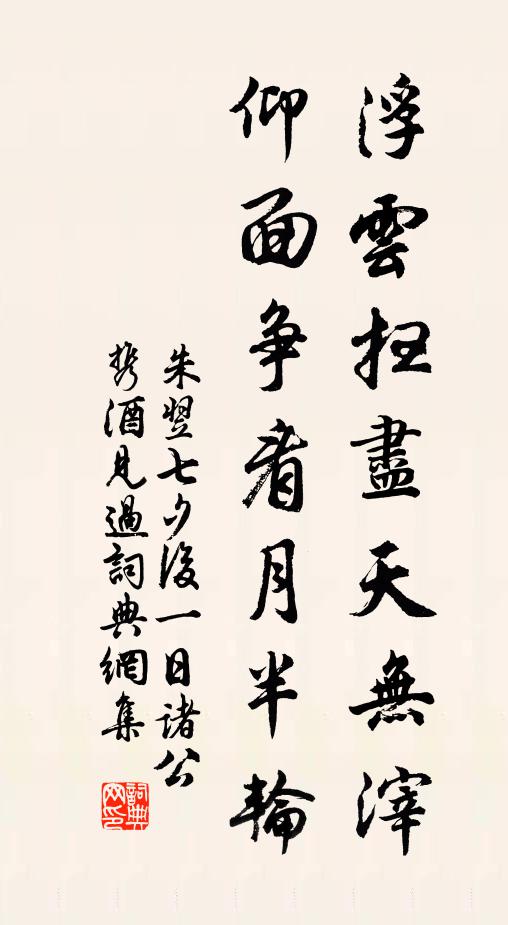 浮雲扫盡天無滓
仰面争看月半輪
朱翌七夕後一日諸公
携酒見過詞典網集
詞典网印